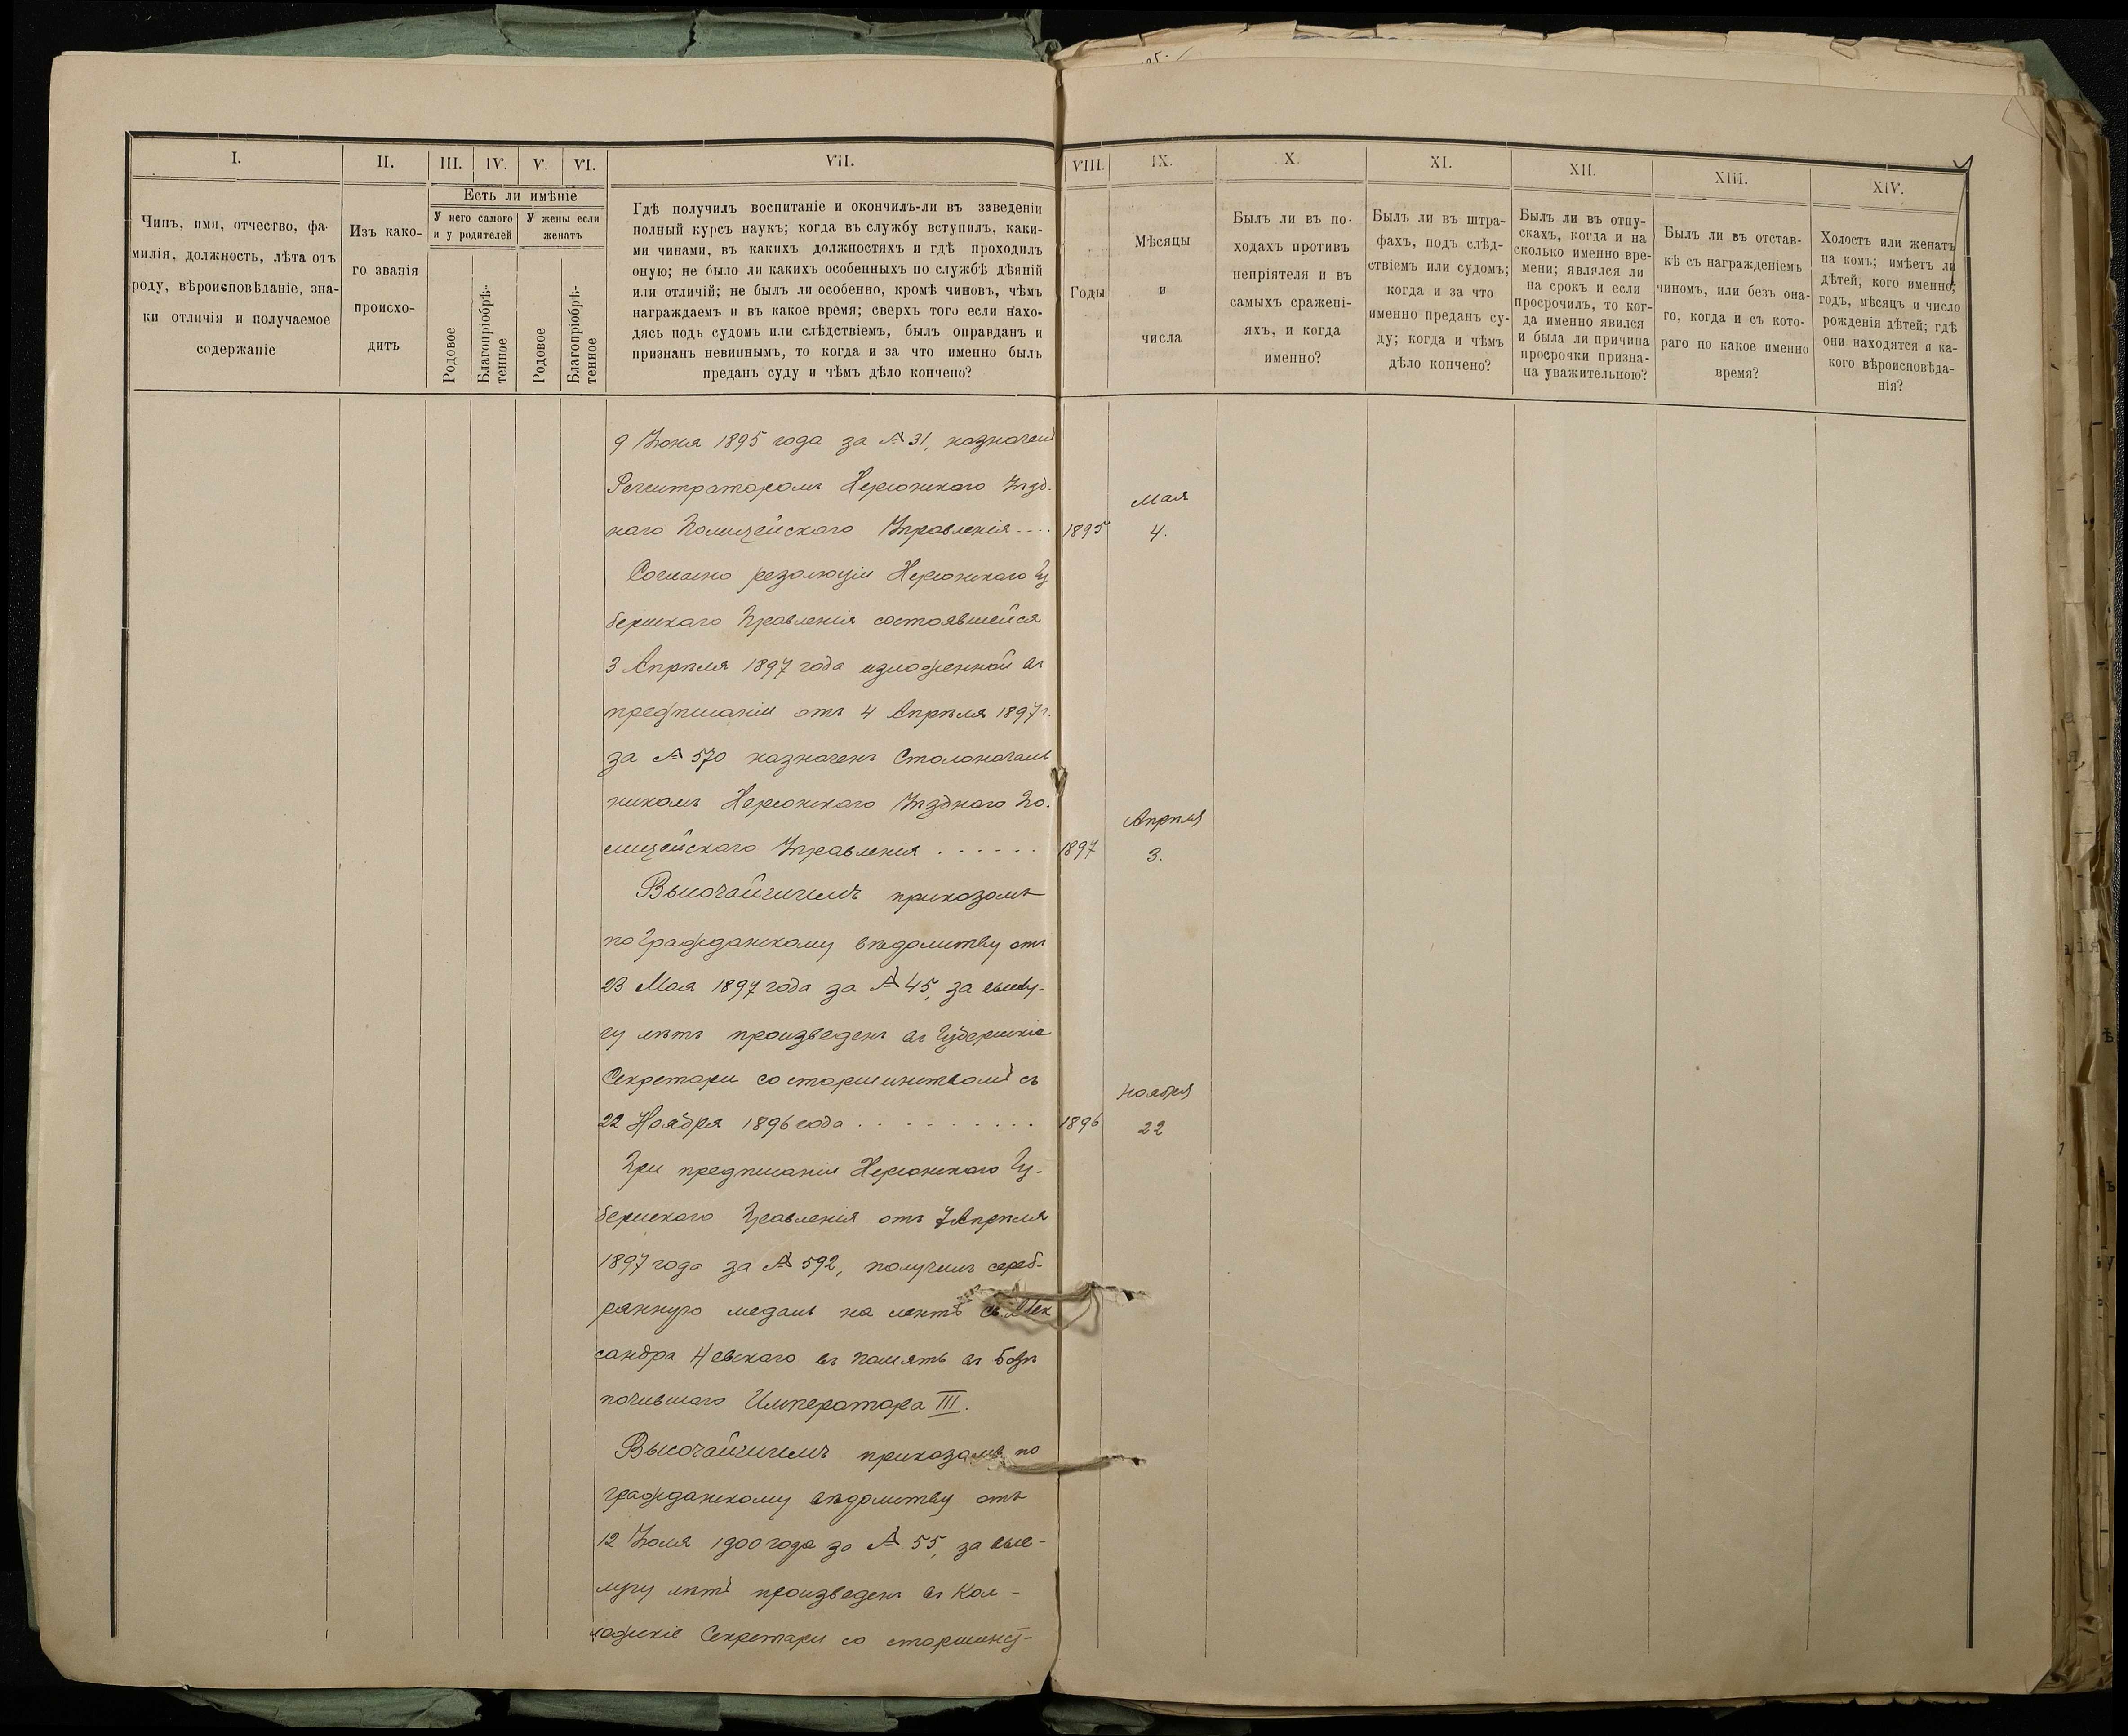 I.
II.
III.
IV.
V.
VI.
VII.
VIII.
IX.
X.
XI.
XII.
XIII.
XIV.
Чинъ, имя, отчество, фа-
милія, должность, лѣта отъ
роду, вѣроисповѣданіе, зна-
ки отличія и получаемое
содержаніе
Изъ како-
го званія
происхо-
дитъ
Есть ли имѣніе
У него самого
и у родителей
У жены если
женатъ
Родовое
Благопріобрѣ-
тенное
Родовое
Благопріобрѣ-
тенное
Гдѣ получилъ воспитаніе и окончилъ-ли въ заведеніи
полный курсъ наукъ; когда въ службу вступилъ, каки-
ми чинами, въ какихъ должностяхъ и гдѣ проходилъ
оную; не было ли какихъ особенныхъ по службѣ дѣяній
или отличій; не былъ ли особенно, кромѣ чиновъ, чѣмъ
награждаемъ и въ какое время; сверхъ того если нахо-
дясь подъ судомъ или слѣдствіемъ, былъ оправданъ и
признанъ невиннымъ, то когда и за что именно былъ
преданъ суду и чѣмъ дѣло кончено?
Годы
Мѣсяцы
и
числа
Былъ ли въ по-
ходахъ противъ
непріятеля и въ
самыхъ сражені-
яхъ, и когда
именно?
Былъ ли въ штра-
фахъ, подъ слѣд-
ствіемъ или судомъ;
когда и за что
именно преданъ су-
ду; когда и чѣмъ
дѣло кончено?
Былъ ли въ отпу-
скахъ, когда и на
сколько именно вре-
мени; являлся ли
на срокъ и если
просрочилъ, то ког-
да именно явился
и была ли причина
просрочки призна-
на уважительною?
Былъ ли въ отстав-
кѣ съ награжденіемъ
чиномъ, или безъ она-
го, когда и съ кото-
раго по какое именно
время?
Холостъ или женатъ
на комъ; имѣетъ ли
дѣтей, кого именно;
годъ, мѣсяцъ и число
рожденія дѣтей; гдѣ
они находятся и ка-
кого вѣроисповѣда-
нія?
9 Іюня 1895 года за № 31, назначенъ
Регистраторомъ Херсонскаго Уѣзд-
наго Полицейскаго Управленія ....
1895
Мая
4.
Согласно резолюціи Херсонскаго Гу
бернскаго Правленія состоявшейся
3 Апрѣля 1897 года изложенной въ
предписаніи отъ 4 Апрѣля 1897 г.
за № 570 назначенъ Столоначаль
никомъ Херсонскаго Уѣзднаго По-
лицейскаго Управленія . . . . . .
1897
Апрѣля
3.
Высочайшимъ приказомъ
по Гражданскому вѣдомству отъ
23 Мая 1897 года за № 45, за выслу-
гу лѣтъ произведенъ въ Губернскіе
Секретари со старшинствомъ съ
22 Ноября 1896 года . . . . . . . . . .
1896
Ноября
22
При предписаніи Херсонскаго Гу-
бернскаго Правленія отъ 7 Апрѣля
1897 года за № 592, получилъ сереб-
рянную медаль на лентѣ Св. Алек
сандра Невскаго въ память въ Бозѣ
почившаго Императора III.
Высочайшимъ приказомъ по
гражданскому вѣдомству отъ
12 Іюля 1900 года за № 55, за выс-
лугу лѣтъ произведенъ въ Кол-
лежскіе Секретари со старшинст-